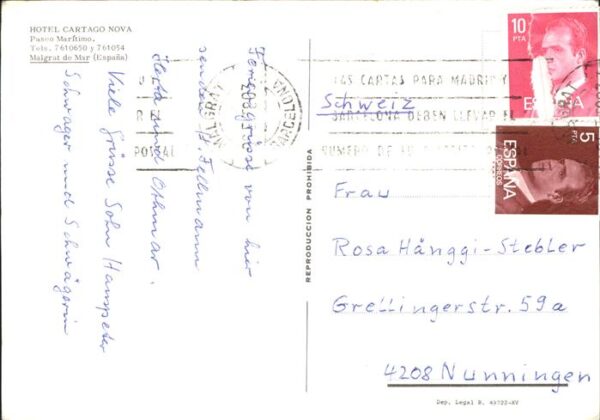 HOTEL CARTAGO NOVA
Paseo Marítimo.
Tels. 7610650 y 761054
Malgrat de Mar (España)
senden H. Fellmann
und Othmar.
Viele Grüsse Sohn Hanspeter
Schwager und Schwägerin
REPRODUCCION PROHIBIDA
LAS CARTAS PARA MADRID Y
BARCELONA DEBEN LLEVAR EL
NUMERO DE
POSTAL
MALGRAT
BARCELONA
10
PTA
ESPAÑA
5
PTA
ESPAÑA
CORREOS
Schweiz
Frau
Rosa Hänggi-Stebler
Grellingerstr. 59a
4208 Nunningen
Dep. Legal B. 49722-XV